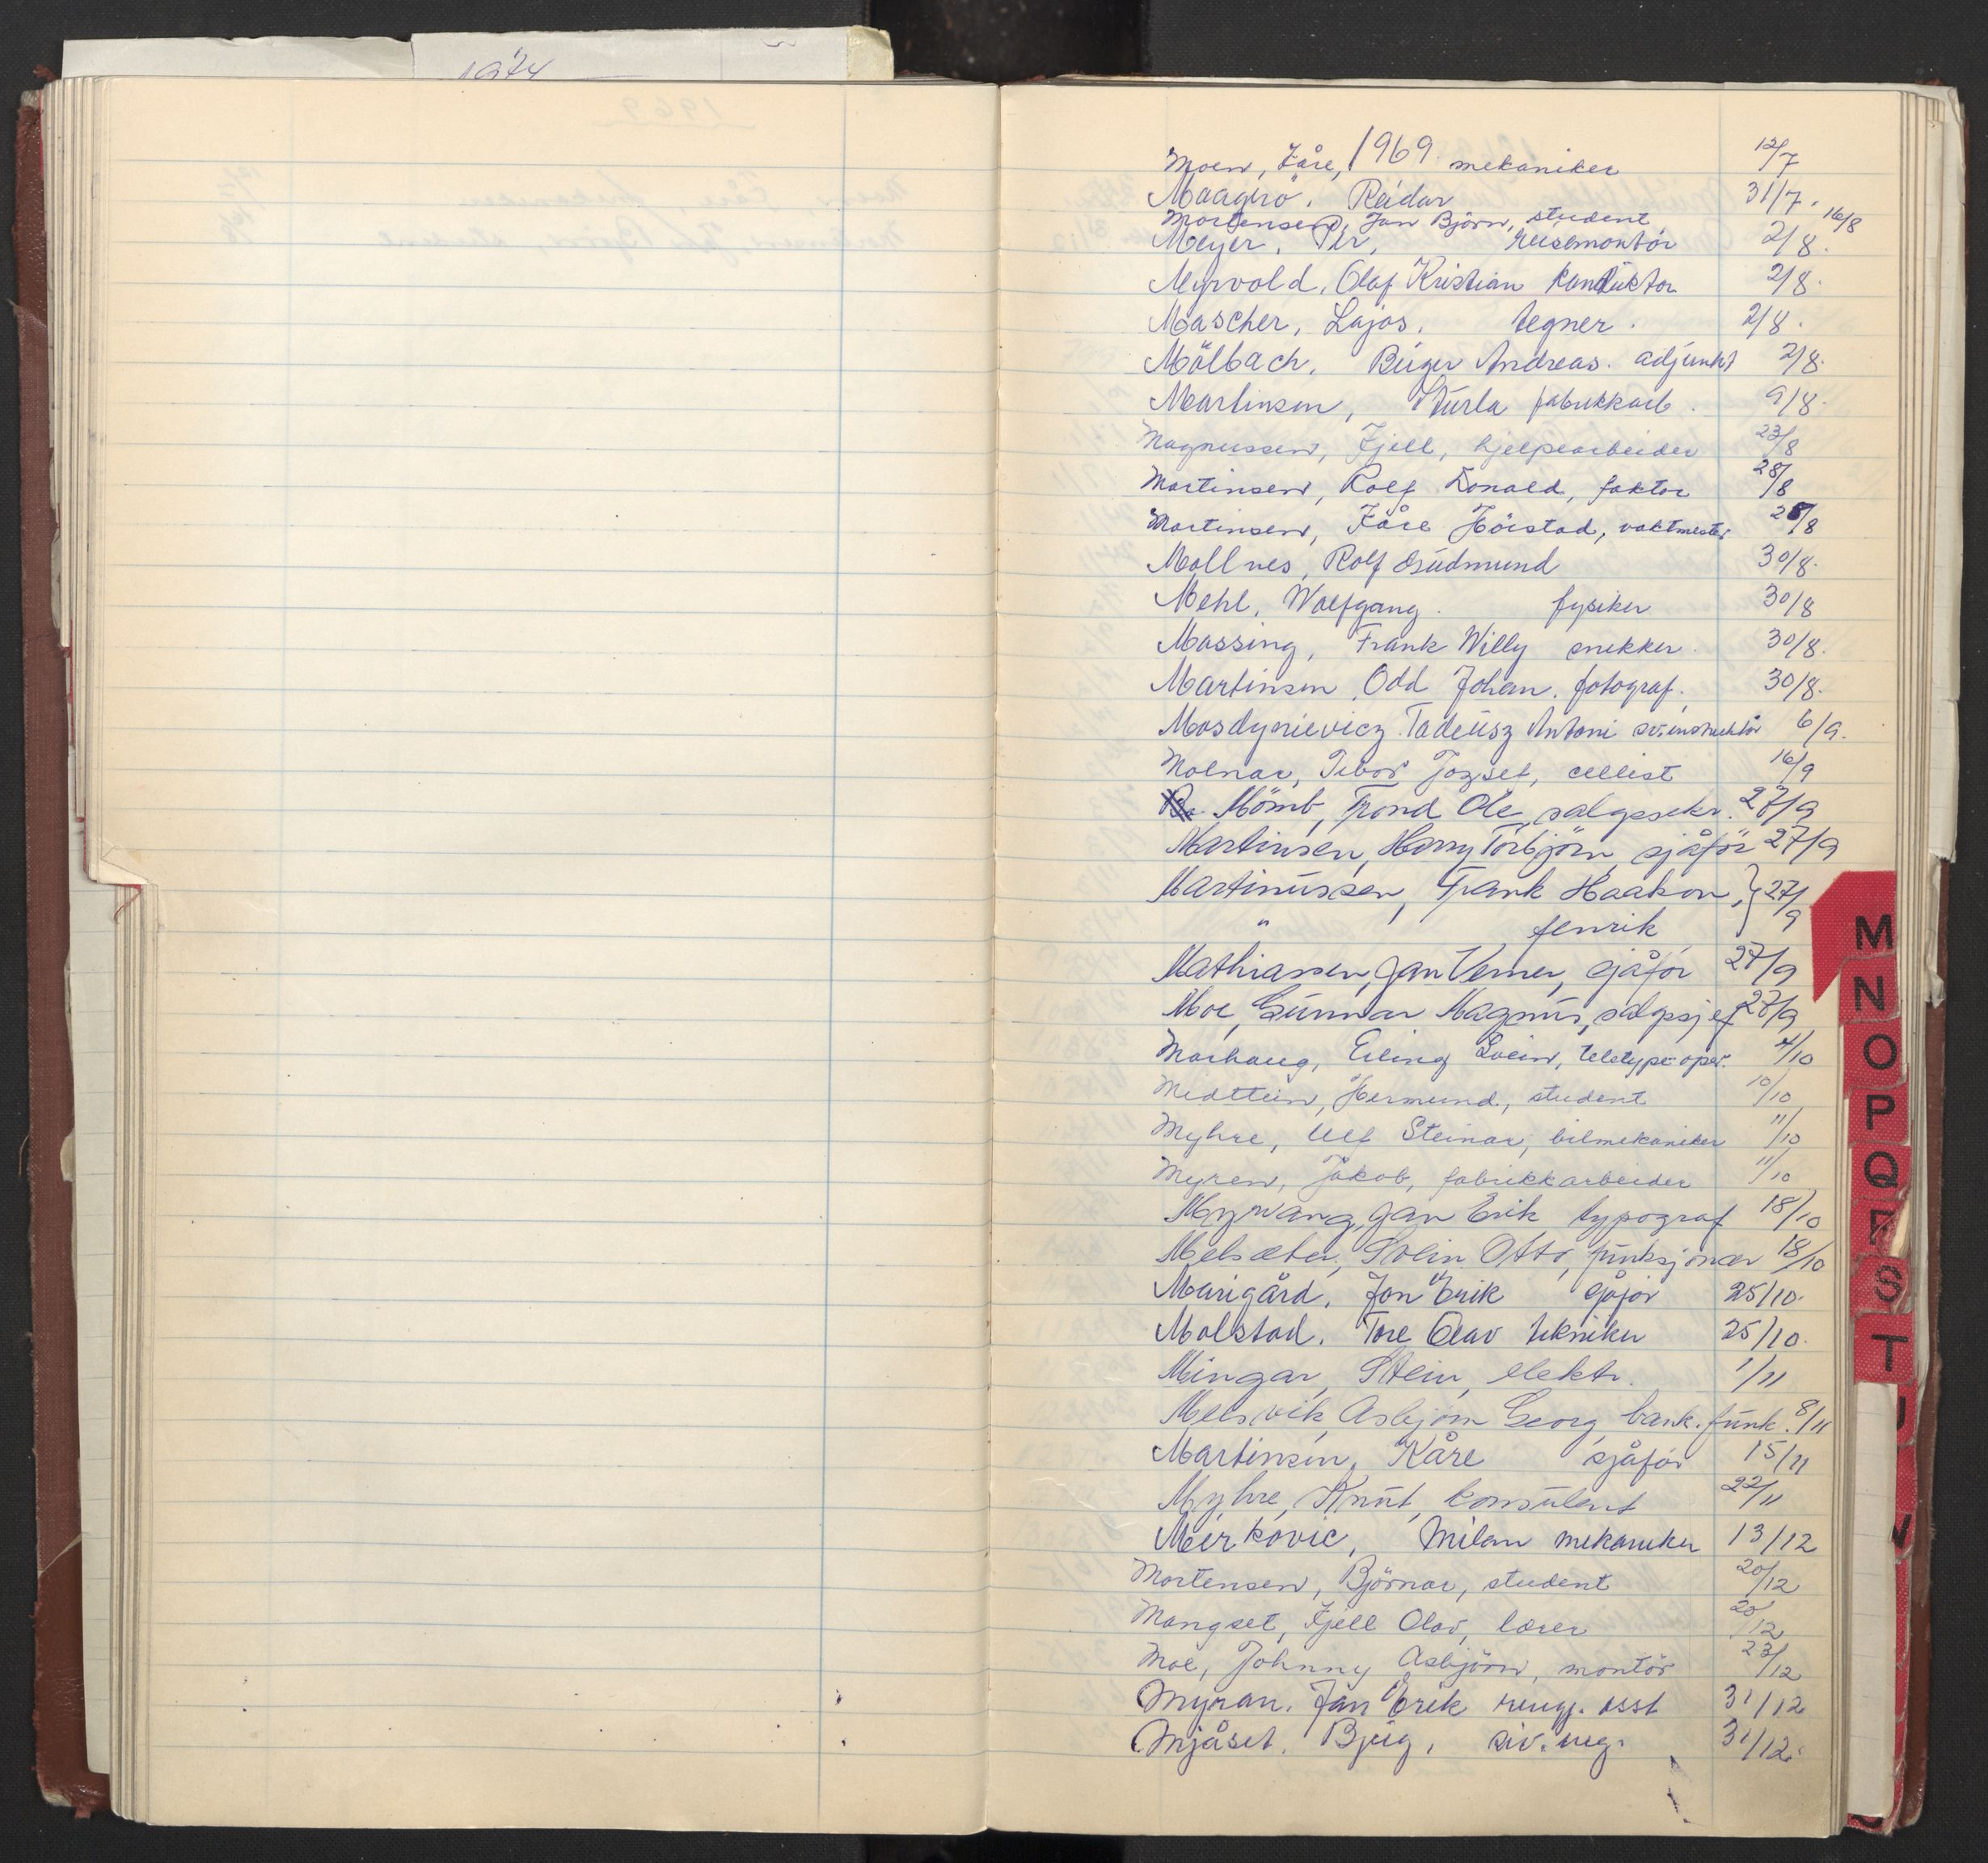 1974
1969
Moen, Kåre, mekaniker 12/7
Maagerö. Reidar 31/7.
Mortensen, Jan Björn, student 16/8
Meyer. Per, reisemontör 2/8.
Myrvold, Olaf Kristian konduktör 2/8.
Mascher, Lajos. tegner. 2/8.
Mölbach, Birger Andreas. adjunkt 2/8.
Martinsen, Sturla fabrikkarb. 9/8.
Magnussen, Kjell, hjelpearbeider 23/8
Martinsen, Rolf Donald, faktor 28/8
Martinsen, Kåre Hörstad, vaktmester 28/8
Mollnes, Rolf Gudmund 30/8.
Mehl, Wolfgang. fysiker 30/8
Massing, Frank Willy snekker. 30/8.
Martinsen, Odd Johan. fotograf. 30/8.
Mosdynievicz Tadeusz Antoni sv.instruktör 6/9.
Molnar, Tibor Jozset, cellist 16/9
Mömb, Trond Ole, salgssekr. 27/9
Martinsen, Harry Torbjörn, sjåför 27/9
Martinussen, Frank Haakon, } 27/9
" fenrik
Mathiassen, Jan Verner, sjåför 27/9
Moe, Gunnar Magnus, salgssjef 27/9
Morhaug, Erling Svein, teletype-oper. 4/10
Medttun, Hermund, student 10/10
Myhre, Ulf Steinar, bilmekaniker 11/10
Myren, Jakob, fabrikkarbeider 11/10
Myrvang, Jan Erik typograf 18/10
Melsæter, Svein Otto, funksjonær 18/10
Marigård, Jon Erik sjåför 25/10.
Molstad. Tore Olav tekniker 25/10.
Mingar, Stein, elektr. 1/11
Melsvik, Asbjörn Georg, bank.funk. 8/11
Martinsen, Kåre sjåför 15/11
Myhre, Knut, konsulent 22/11
Mirkovic, Milan mekaniker 13/12
Mortensen, Björnar, student 20/12
Mangset, Kjell Olav, lærer 20/12
Moe, Johnny Asbjörn, montör 23/12
Myran. Jan Erik rengj. asst 31/12
Mjåset, Bjug, siv.ing. 31/12.
M
N
O
P
Q
R
S
T
U
V